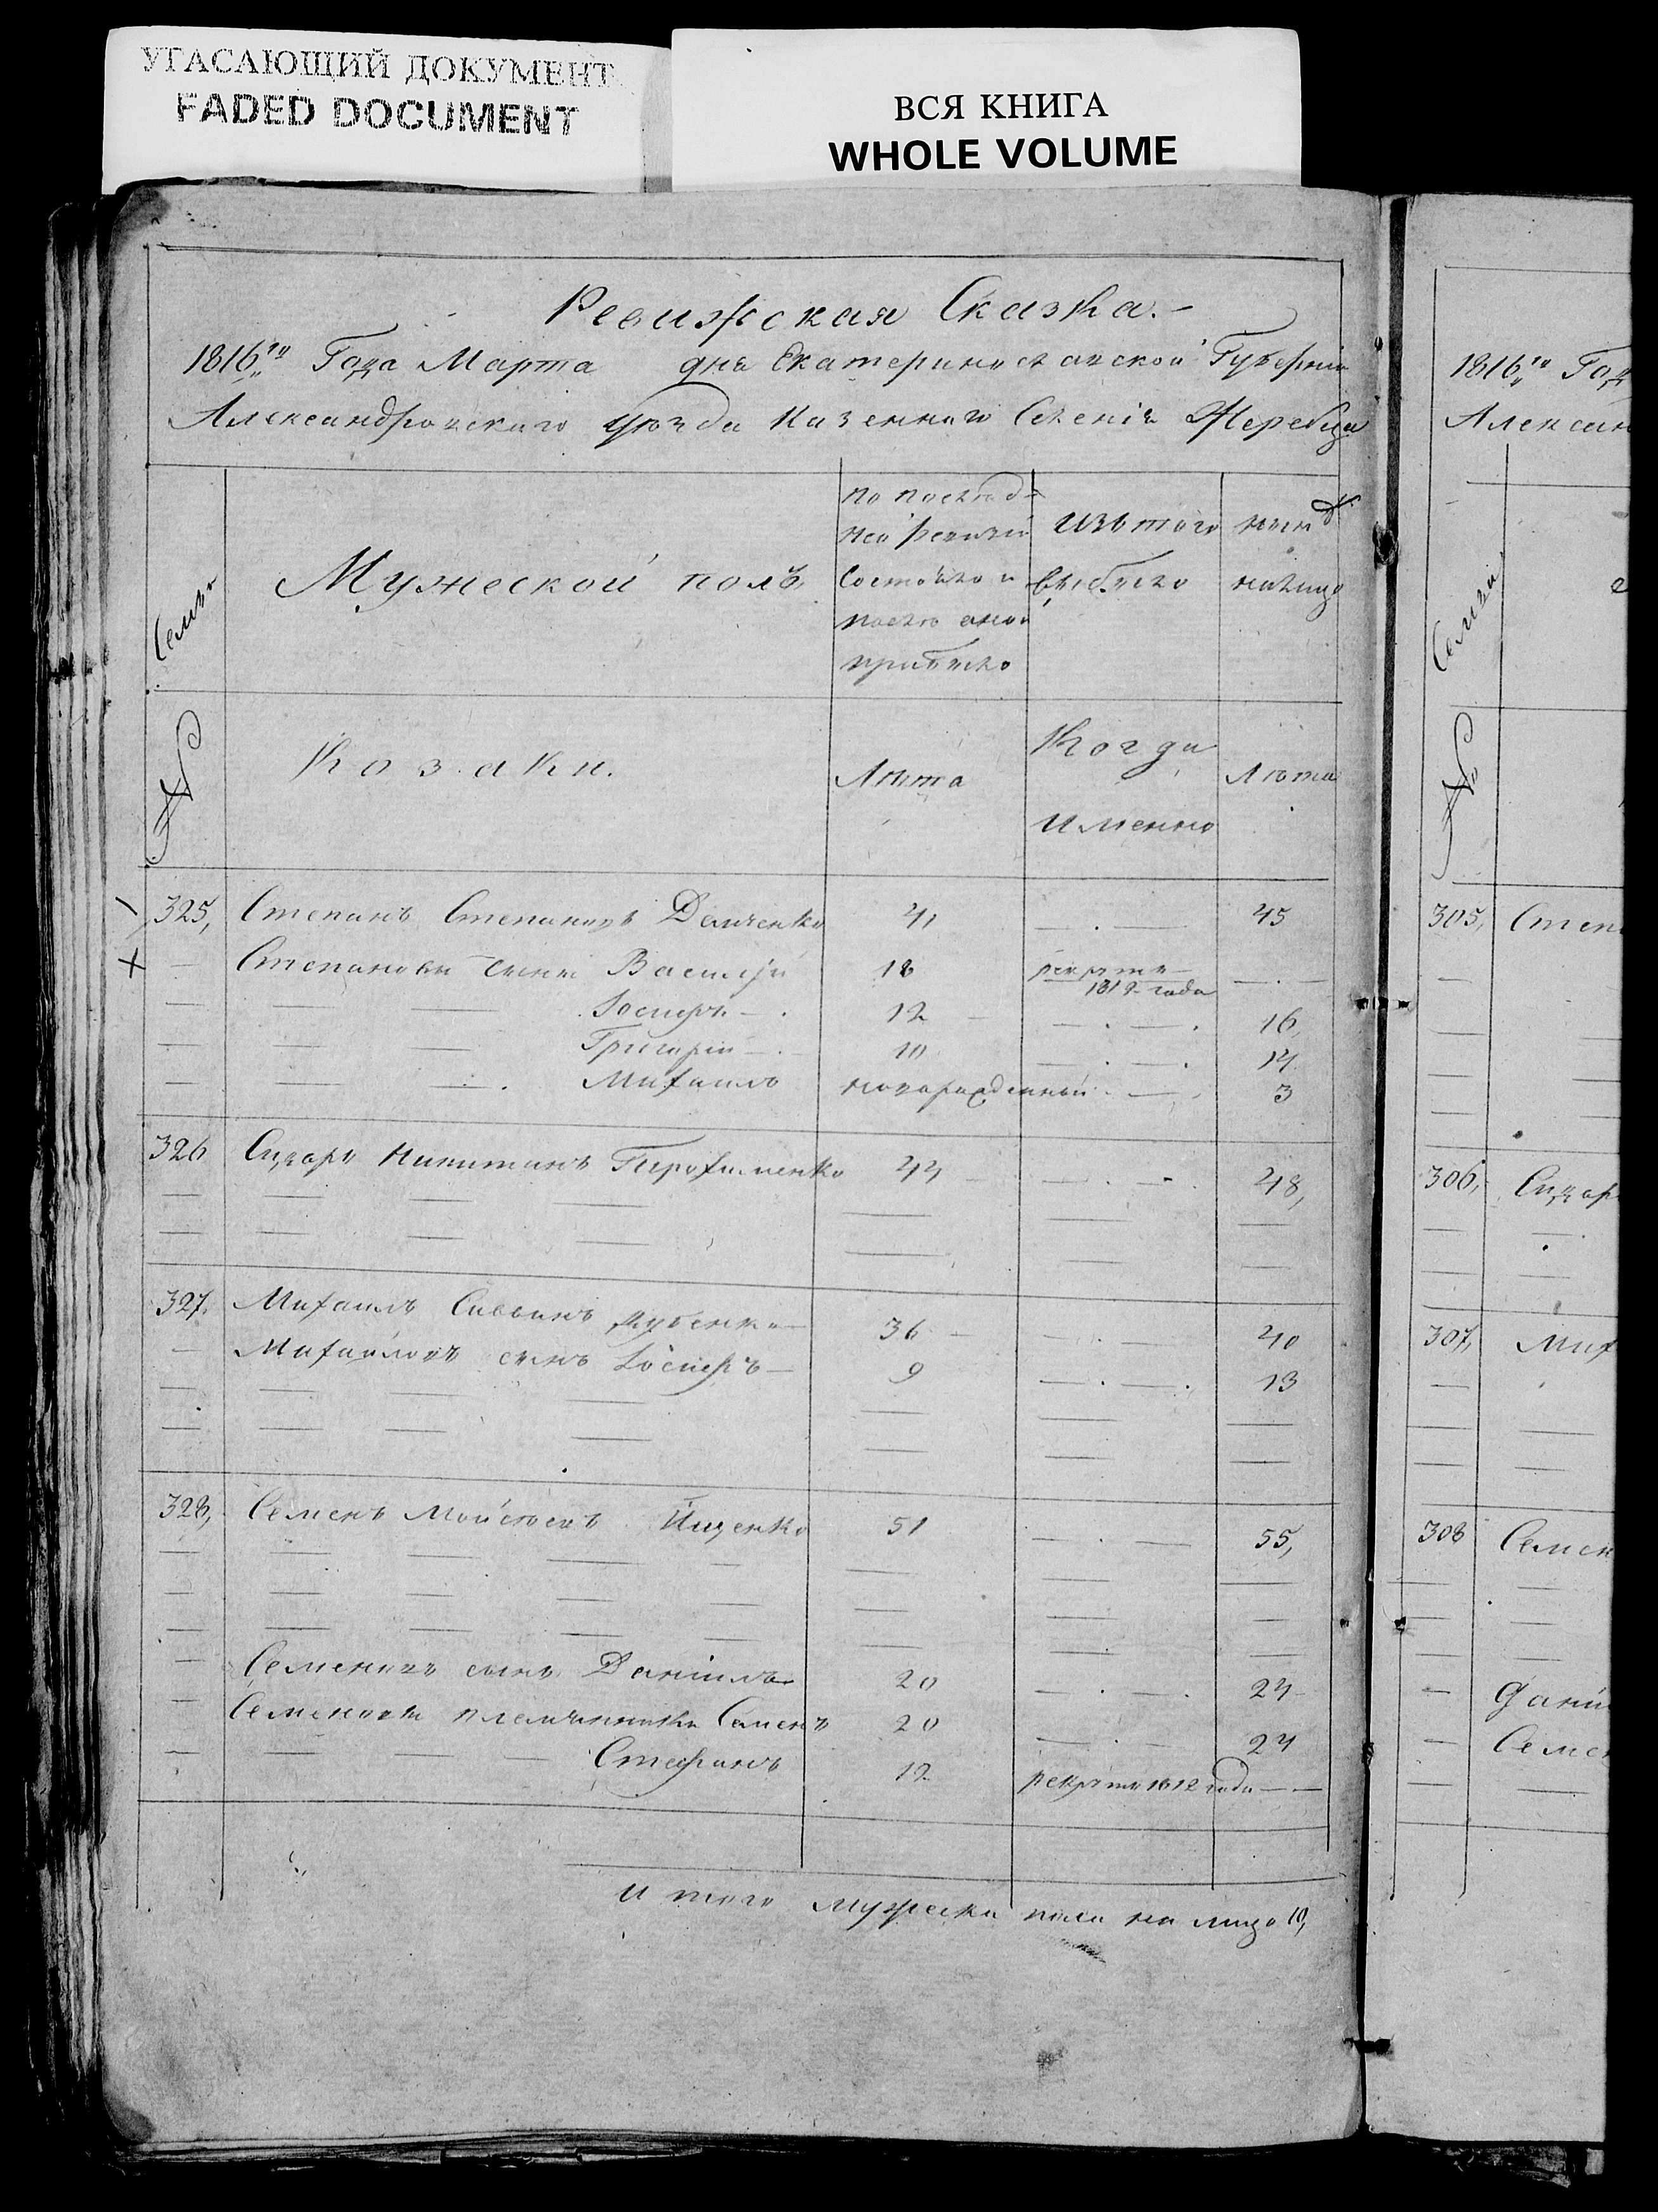 УГАСАЮЩИЙ ДОКУМЕНТ
FADED DOCUMENT
ВСЯ КНИГА
WHOLE VOLUME
Ревижская Сказка.
1816го Года Марта дня Екатеринославской Губернии
Александровскаго уезда Казеннаго Селенія Жеребца
Семьи
Мужеской полъ
по послед-
ней ревизіи
состояло и
после оной
прибыло
Изъ того
выбыло
ныне
налицо
№
Козаки.
Лета
Когда
именно
Лета
325, Степанъ Степановъ Демченко 41 45
Степановы сыны Василій 18 рекрутъ
1812 года
Іосифъ 12 16,
Григорій 10 14
Михаилъ новорожденный 3
326 Сидоръ Никитинъ Трофименко 44 48,
327. Михаилъ Саввинъ 36 40
Михайловъ сынъ Іосифъ 9 13
328, Семенъ Мойсеевъ Ищенко 51 55,
Семеновъ сынъ Даніилъ 20 24
Семеновы племянники Семенъ 20 24
Стефанъ 12 рекрутъ 1812 года
И того мужеска пола на лицо 10,
1816го Год
Алексан
Семьи
№
305, Степ
306, Сидор
307, Мих
308 Семен
Дані
Семе